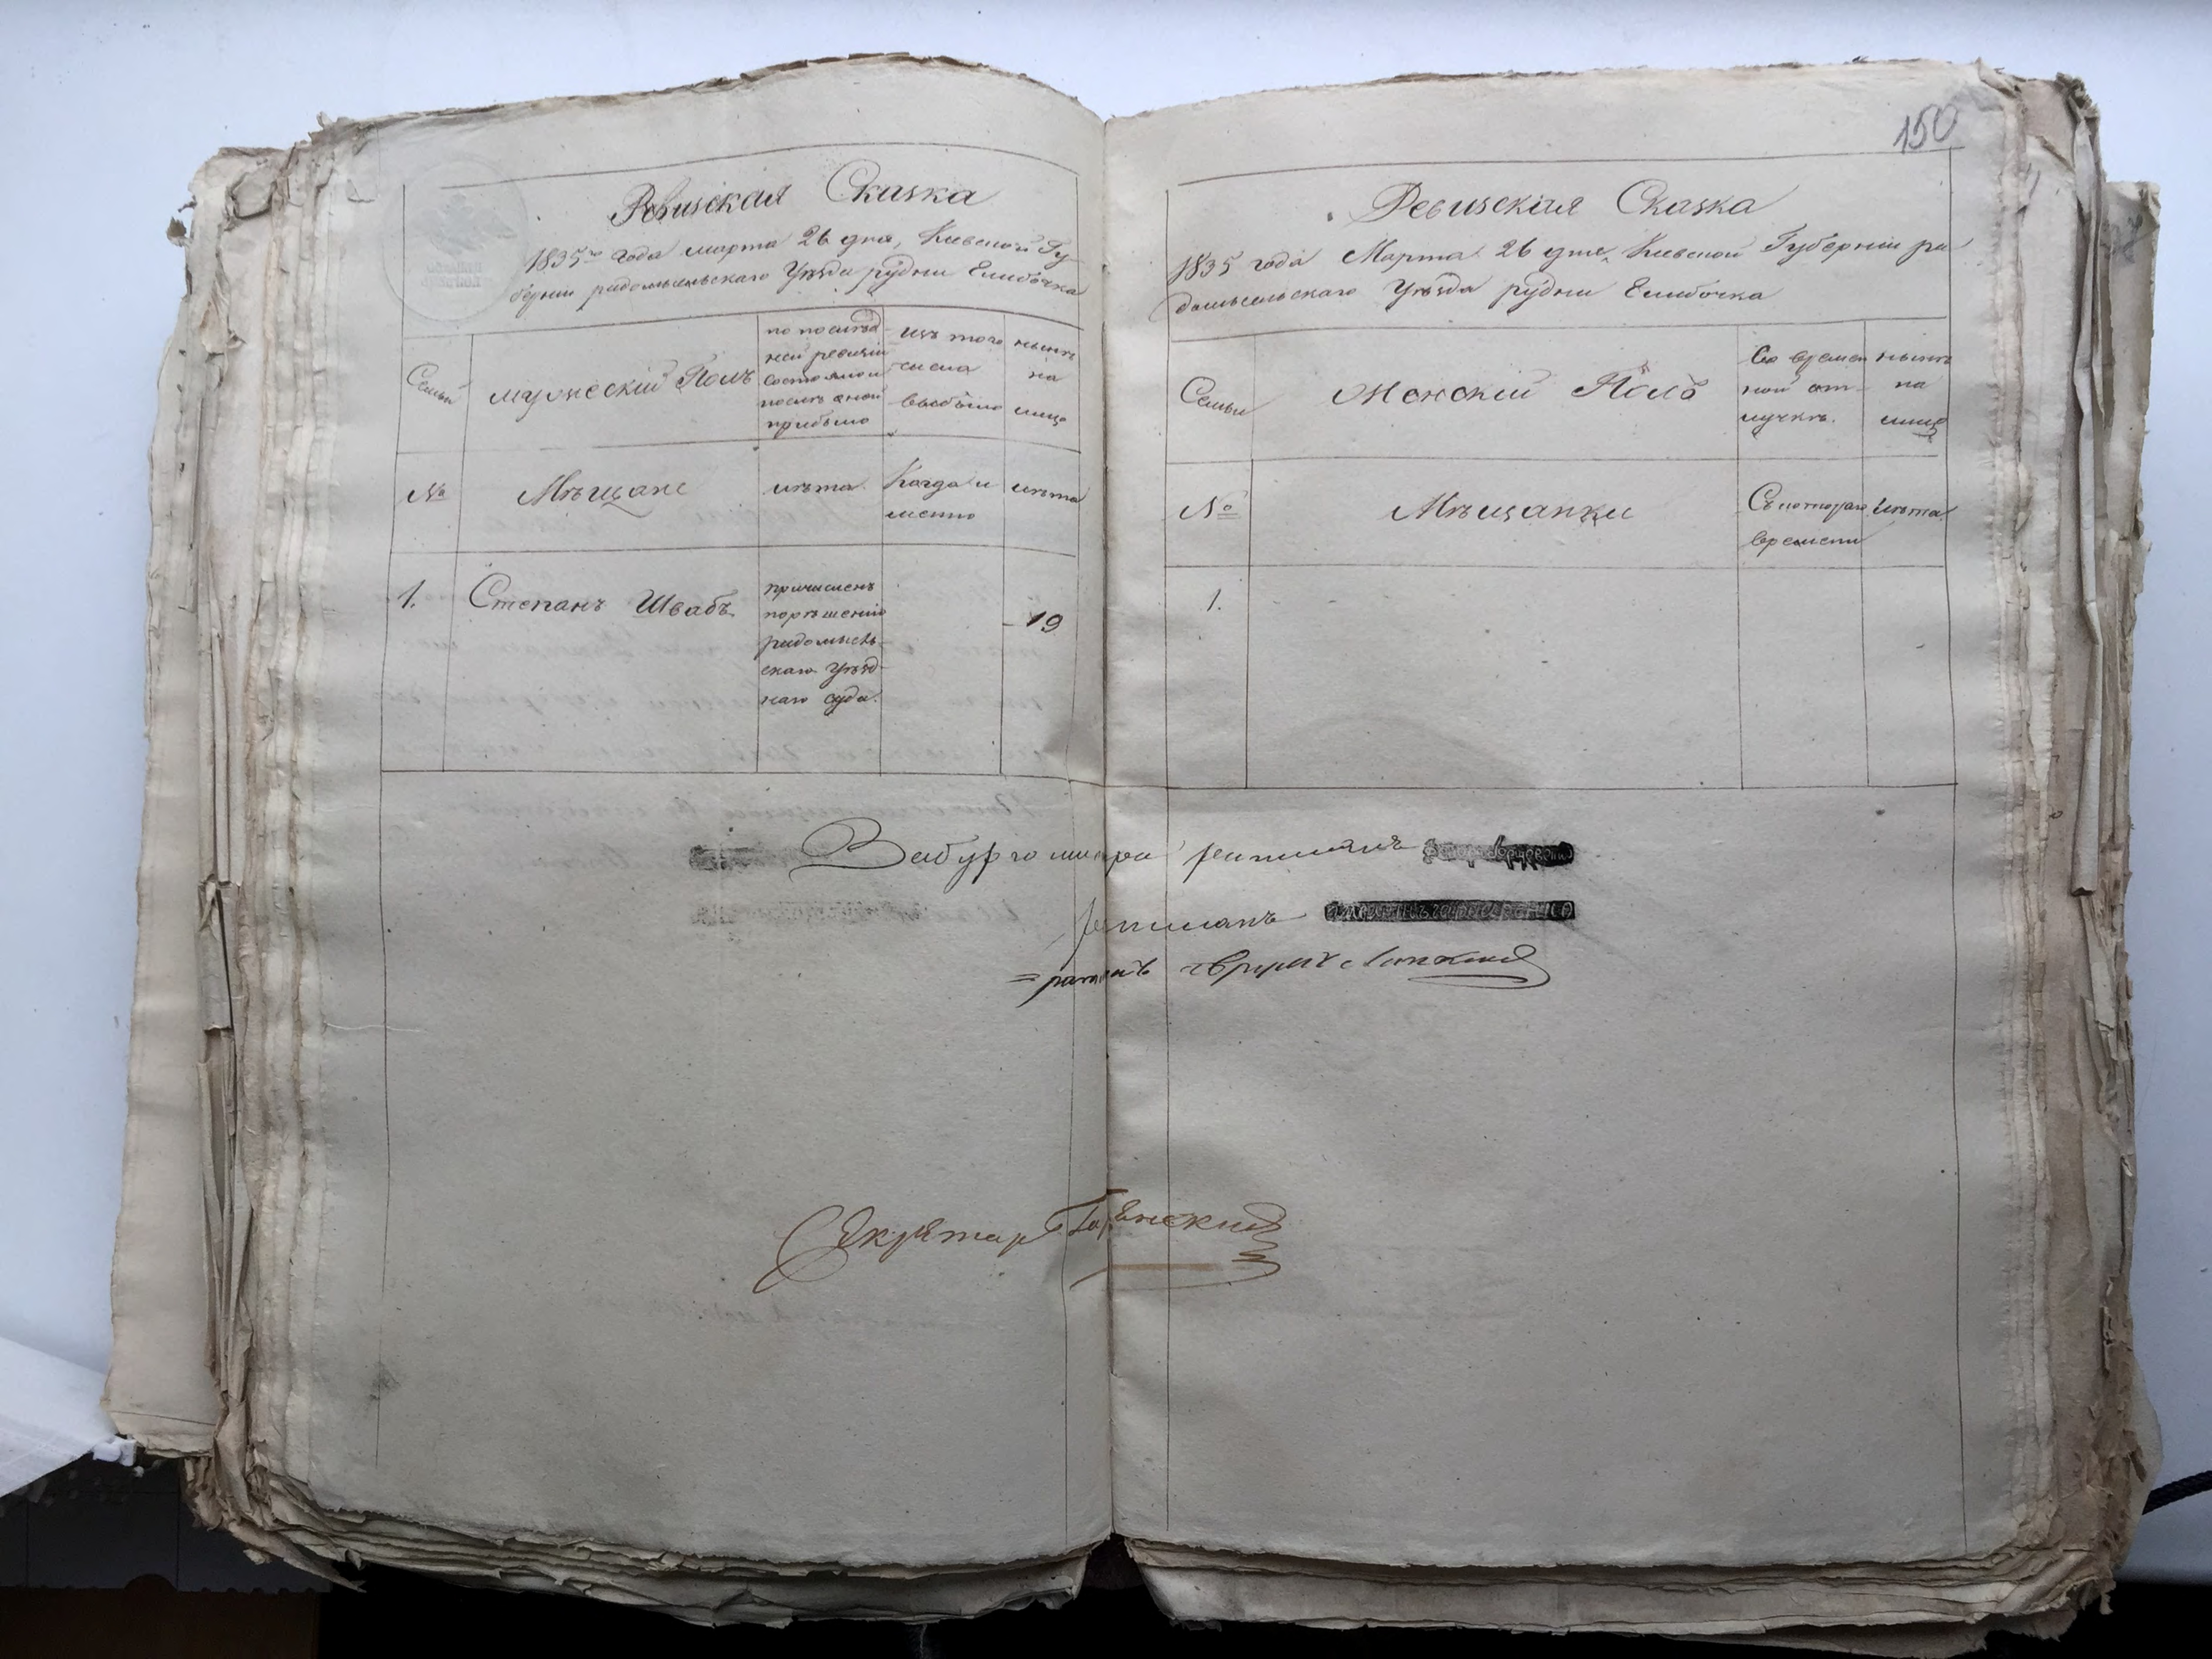 150
Ревизская Сказка
1835го года марта 26 дня, Киевской Гу
берніи радомысльскаго Уѣзда рудни Емибочка
Семьи
мужескій Полъ
по послѣд
ней ревизіи
состояло и
послѣ оной
прибыло
изъ того
числа
выбыло
нынѣ
на
лицо
№
Мѣщане
лѣта
Когда и
менно
лѣта
1.
Степанъ Швабъ
причисленъ
порѣшенію
радомысль
скаго Уѣзд
наго суда.
19
Ревизская Сказка
1835 года Марта 26 дня, Киевской Губерніи ра
домысльскаго Уѣзда рудни Емибочка
Семьи
Женскій Полъ
Во времен
ной от
лучкѣ.
нынѣ
на
лицо
№
Мѣщанки
Съ котораго
времени
лѣта
1.
За бургомистра ратманъ
ратманъ
ратманъ
Секретарь